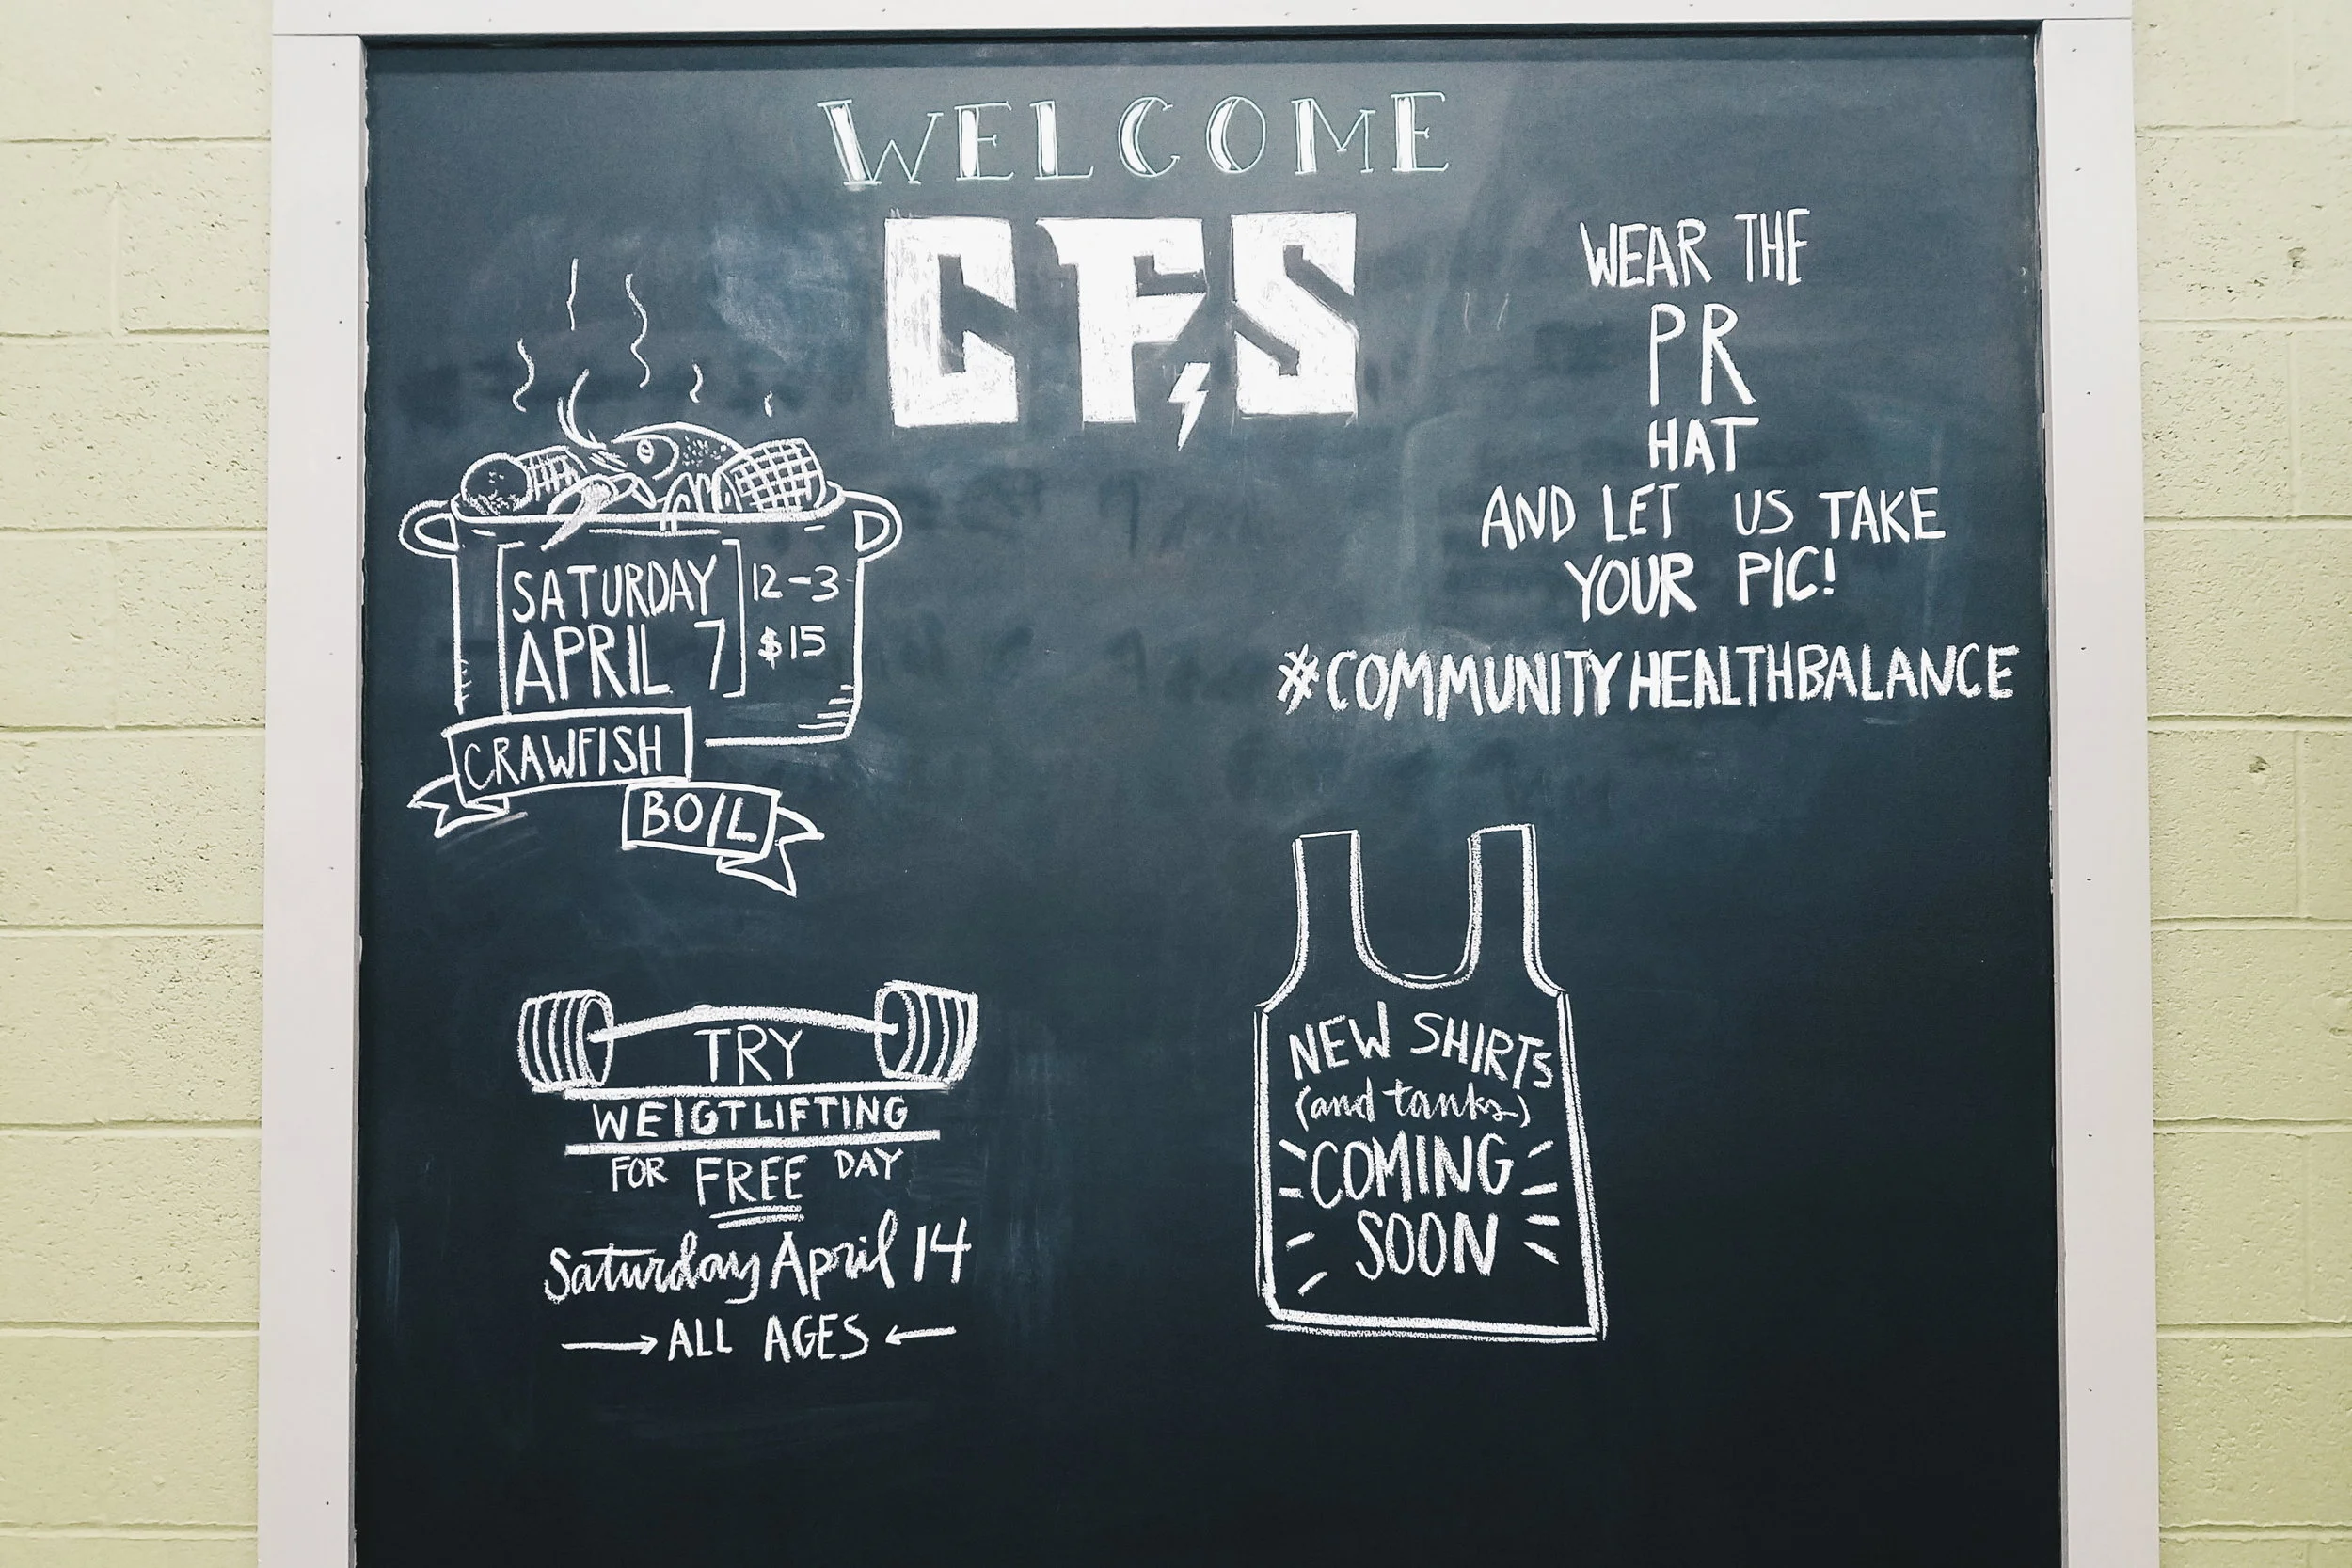 WELCOME
CFS
SATURDAY
APRIL 7
12-3
$15
CRAWFISH
BOIL
WEAR THE
PR
HAT
AND LET US TAKE
YOUR PIC!
#COMMUNITYHEALTHBALANCE
TRY
WEIGTLIFTING
FOR FREE DAY
Saturday April 14
ALL AGES
NEW SHIRTS
(and tanks)
COMING
SOON